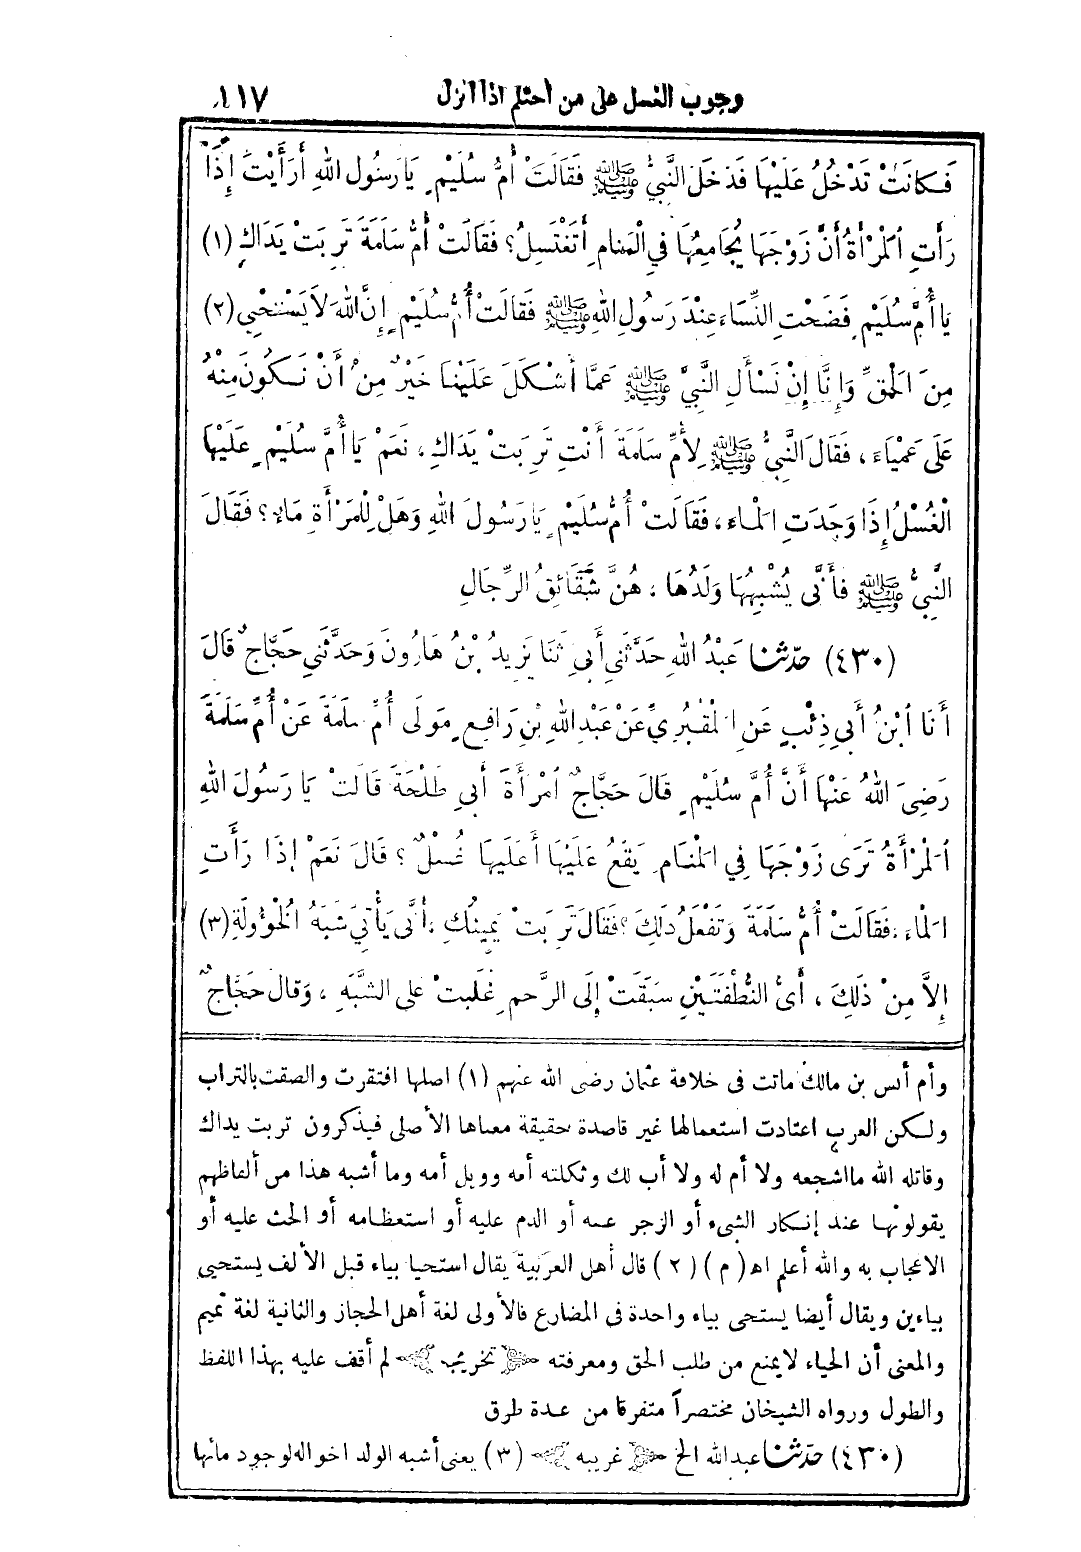 وجوب الغسل على من احتلم اذا أنزل ١١٧
فَكَانَتْ تَدْخُلُ عَلَيْهَا فَدَخَلَ النَّبِيُّ ﷺ فَقَالَتْ أُمُّ سُلَيْمٍ يَا رَسُولَ اللهِ أَرَأَيْتَ إِذَا
رَأَتِ الْمَرْأَةُ أَنَّ زَوْجَهَا يُجَامِعُهَا فِي الْمَنَامِ أَتَغْتَسِلُ؟ فَقَالَتْ أُمُّ سَلَمَةَ تَرِبَتْ يَدَاكِ (١)
يَا أُمَّ سُلَيْمٍ فَضَحْتِ النِّسَاءَ عِنْدَ رَسُولِ اللهِ ﷺ فَقَالَتْ أُمُّ سُلَيْمٍ إِنَّ اللهَ لَا يَسْتَحْيِي (٢)
مِنَ الْحَقِّ وَإِنَّا إِنْ نَسْأَلِ النَّبِيَّ ﷺ عَمَّا أَشْكَلَ عَلَيْنَا خَيْرٌ مِنْ أَنْ نَكُونَ مِنْهُ
عَلَى عَمْيَاءَ، فَقَالَ النَّبِيُّ ﷺ لِأُمِّ سَلَمَةَ أَنْتِ تَرِبَتْ يَدَاكِ، نَعَمْ يَا أُمَّ سُلَيْمٍ عَلَيْهَا
الْغُسْلُ إِذَا وَجَدَتِ الْمَاءَ، فَقَالَتْ أُمُّ سُلَيْمٍ يَا رَسُولَ اللهِ وَهَلْ لِلْمَرْأَةِ مَاءٌ؟ فَقَالَ
النَّبِيُّ ﷺ فَأَنَّى يُشْبِهُهَا وَلَدُهَا، هُنَّ شَقَائِقُ الرِّجَالِ
(٤٣٠) حدّثنا عَبْدُ اللهِ حَدَّثَنِي أَبِي ثَنَا يَزِيدُ بْنُ هَارُونَ وَحَدَّثَنِي حَجَّاجٌ قَالَ
أَنَا ابْنُ أَبِي ذِئْبٍ عَنِ الْمَقْبُرِيِّ عَنْ عَبْدِ اللهِ بْنِ رَافِعٍ مَوْلَى أُمِّ سَلَمَةَ عَنْ أُمِّ سَلَمَةَ
رَضِيَ اللهُ عَنْهَا أَنَّ أُمَّ سُلَيْمٍ قَالَ حَجَّاجٌ امْرَأَةَ أَبِي طَلْحَةَ قَالَتْ يَا رَسُولَ اللهِ
الْمَرْأَةُ تَرَى زَوْجَهَا فِي الْمَنَامِ يَقَعُ عَلَيْهَا أَعَلَيْهَا غُسْلٌ؟ قَالَ نَعَمْ إِذَا رَأَتِ
الْمَاءَ، فَقَالَتْ أُمُّ سَلَمَةَ وَتَفْعَلُ ذَلِكَ؟ فَقَالَ تَرِبَتْ يَمِينُكِ، أَنَّى يَأْتِي شَبَهُ الْخُؤُولَةِ (٣)
إِلَّا مِنْ ذَلِكَ، أَيُّ النُّطْفَتَيْنِ سَبَقَتْ إِلَى الرَّحِمِ غَلَبَتْ عَلَى الشَّبَهِ، وَقَالَ حَجَّاجٌ
وأم أنس بن مالك ماتت فى خلافة عثمان رضى الله عنهم (١) اصلها افتقرت والصقت بالتراب
ولكن العرب اعتادت استعمالها غير قاصدة حقيقة معناها الأصلى فيذكرون تربت يداك
وقاتله الله ما اشجعه ولا أم له ولا أب لك وثكلته أمه وويل أمه وما أشبه هذا من ألفاظهم
يقولونها عند إنكار الشىء أو الزجر عنه أو الذم عليه أو استعظامه أو الحث عليه أو
الاعجاب به والله أعلم اه‍ (م) (٢) قال أهل العربية يقال استحيا بياء قبل الألف يستحيي
بياءين ويقال أيضا يستحى بياء واحدة فى المضارع فالأولى لغة أهل الحجاز والثانية لغة تميم
والمعنى أن الحياء لا يمنع من طلب الحق ومعرفته ﴿تخريجه﴾ لم أقف عليه بهذا اللفظ
والطول ورواه الشيخان مختصراً متفرقا من عدة طرق
(٤٣٠) حدّثنا عبد الله الخ ﴿غريبه﴾ (٣) يعنى أشبه الولد اخواله لوجود مائها